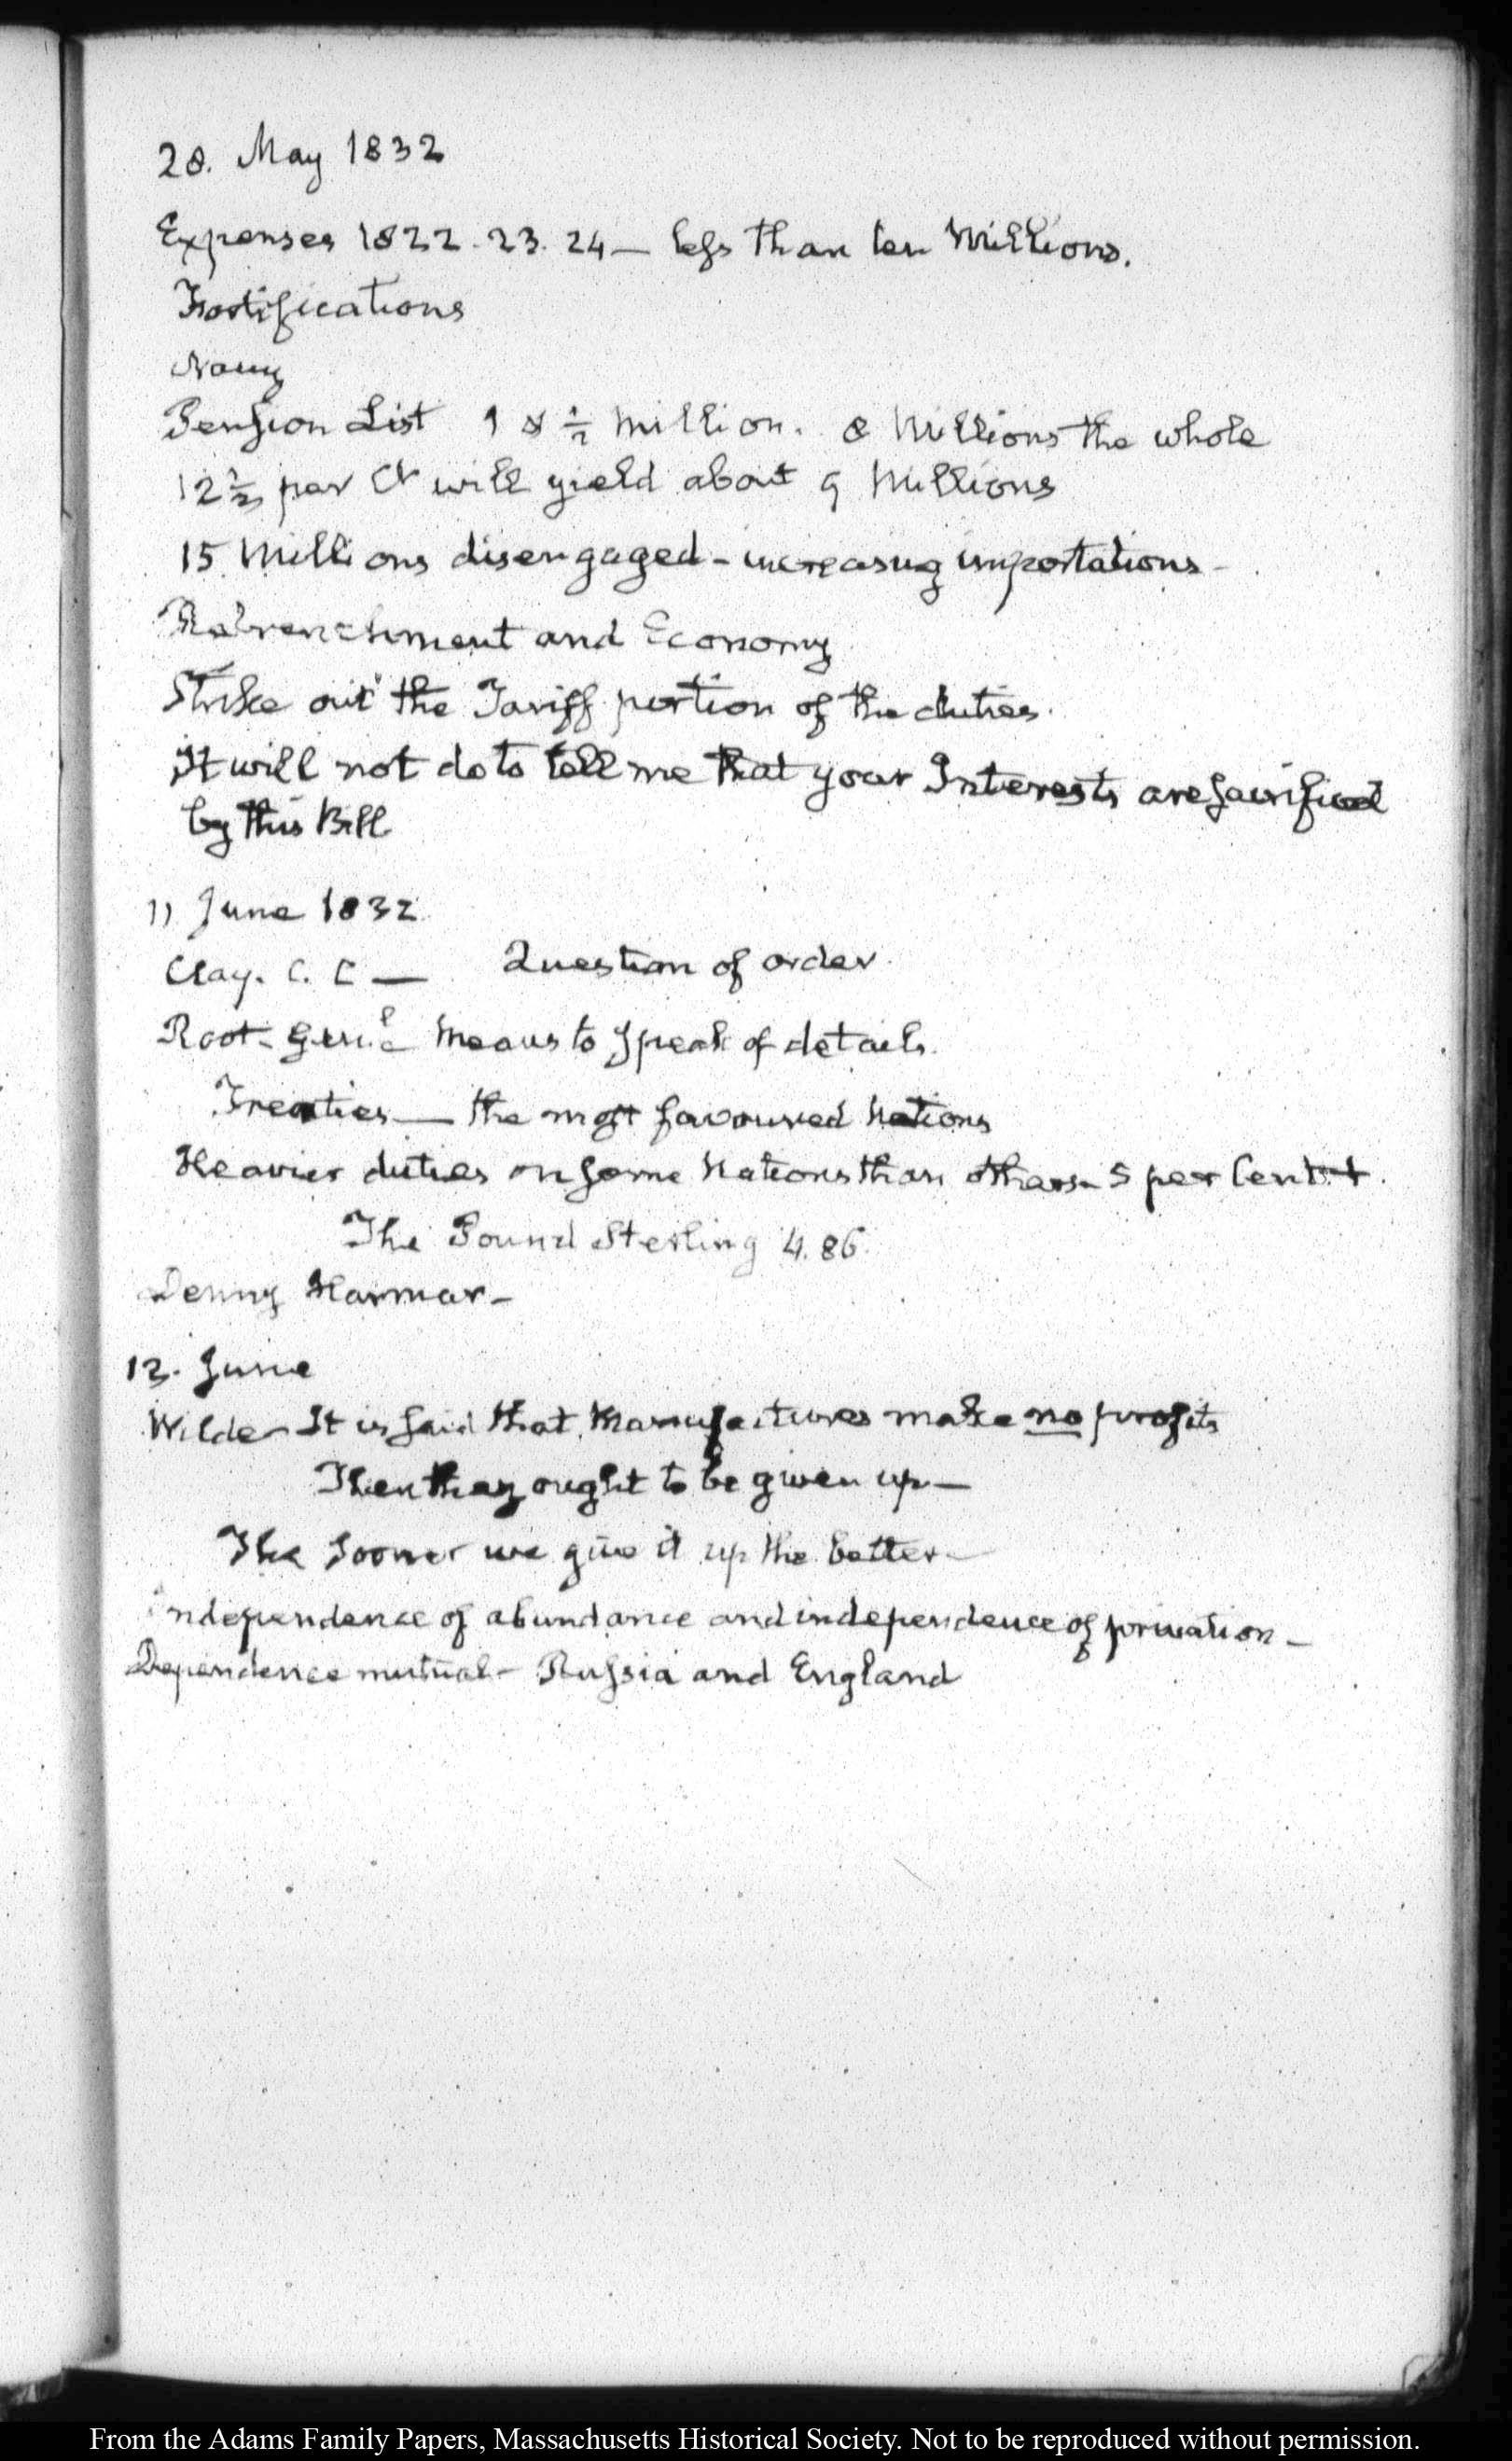 28. May 1832
Expenses 1822. 23. 24 — less than ten Millions.
Fortifications
Navy
Pension List 1 & ½ Million. 8 Millions the whole
12½ per Ct will yield about 9 Millions
15 Millions disengaged - increasing importations -
Retrenchment and Economy
Strike out the Tariff portion of the duties.
It will not do to tell me that your Interests are sacrificed
by this Bill
11 June 1832
Clay. C. C — Question of order.
Root - Genl. means to speak of details.
Treaties — the most favoured Nations
Heavier duties on some Nations than others - 5 per Cent
The Pound Sterling 4.86.
Denny Harmar -
12. June
Wilde - It is said that Manufactures make no profits
Then they ought to be given up —
The sooner we give it up the better —
Independence of abundance and independence of privation —
Dependence mutual - Russia and England
From the Adams Family Papers, Massachusetts Historical Society. Not to be reproduced without permission.